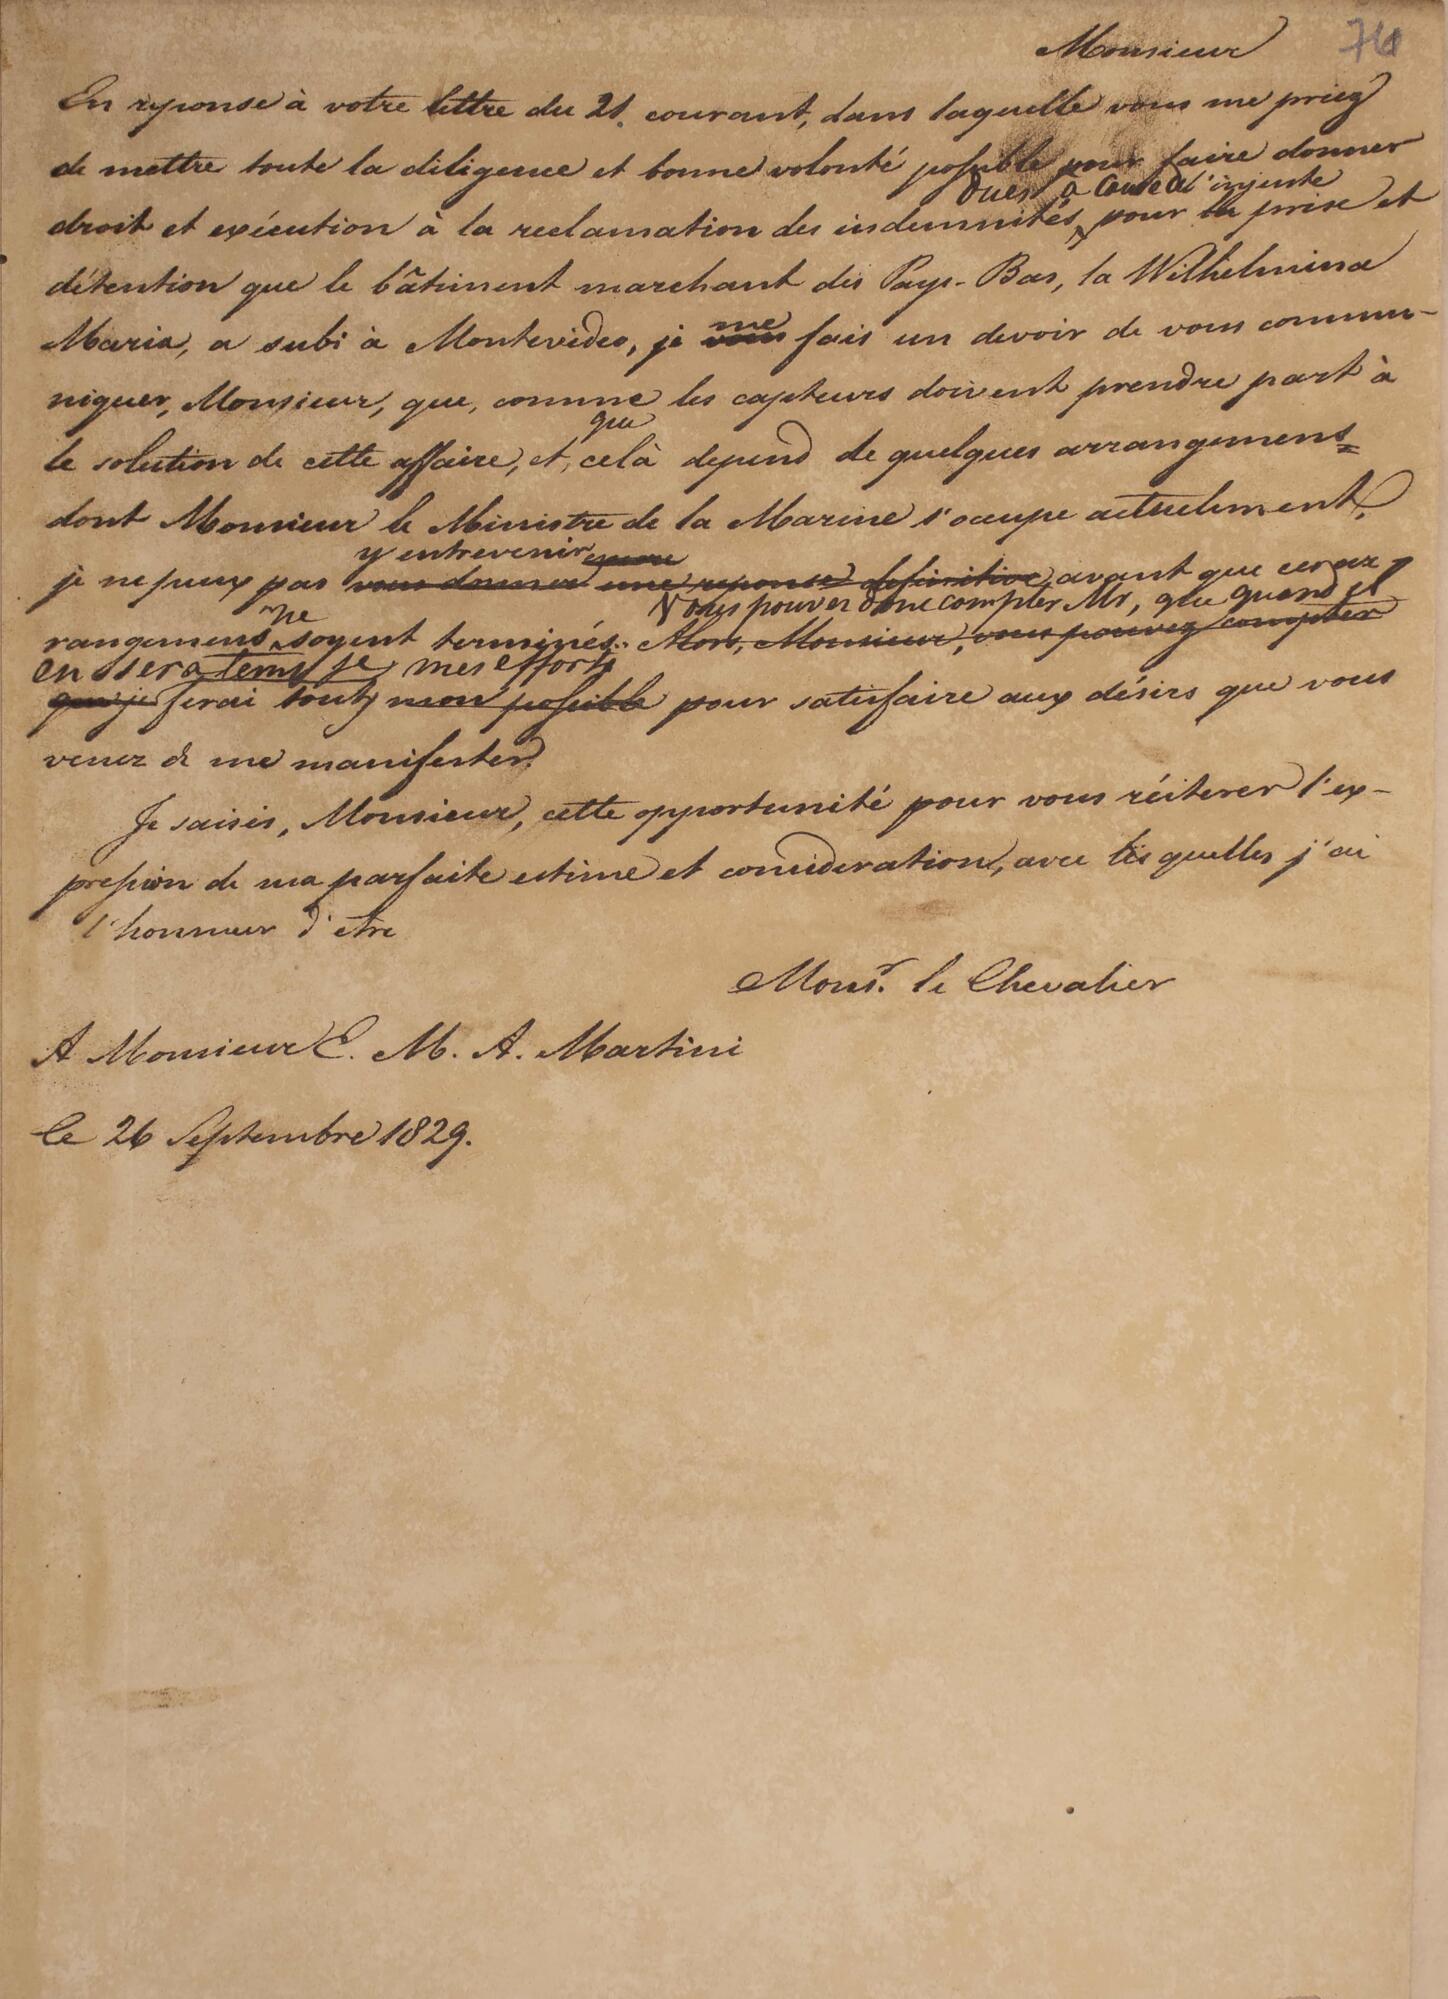 Monsieur 76
En reponse à votre lettre du 21. courant, dans laquelle vous me priez
de mettre toute la diligence et bonne volonté possible pour faire donner
dues à cause de l'injuste
droit et exécution à la reclamation des indemnités, pour la prise et
détention que le bâtiment marchant des Pays-Bas, la Wilhelmina
me
Maria, a subi à Montevideo, je vous fais un devoir de vous commu-
niquer, Monsieur, que, comme les capteurs doivent prendre part à
que
le solution de cette affaire, et, celà depend de quelques arrangemens
dont Monsieur le Ministre de la Marine s'occupe actuelement,
y entrevenir encore
je ne peux pas vous donner une reponse definitive avant que ces ar-
ne Vous pouvez donc compter Mr, que quand il
rangemens soyent terminés. Alors, Monsieur, vous pouvez compter
en sera tems je mes efforts
que je ferai tout mon possible pour satisfaire aux désirs que vous
venez de me manifester.
Je saisis, Monsieur, cette opportunité pour vous réiterer l'ex-
pression de ma parfaite estime et consideration, avec lesquelles j'ai
l'honneur d'etre
Monsr. le Chevalier
A Monsieur E. M. A. Martini
le 26 Septembre 1829.